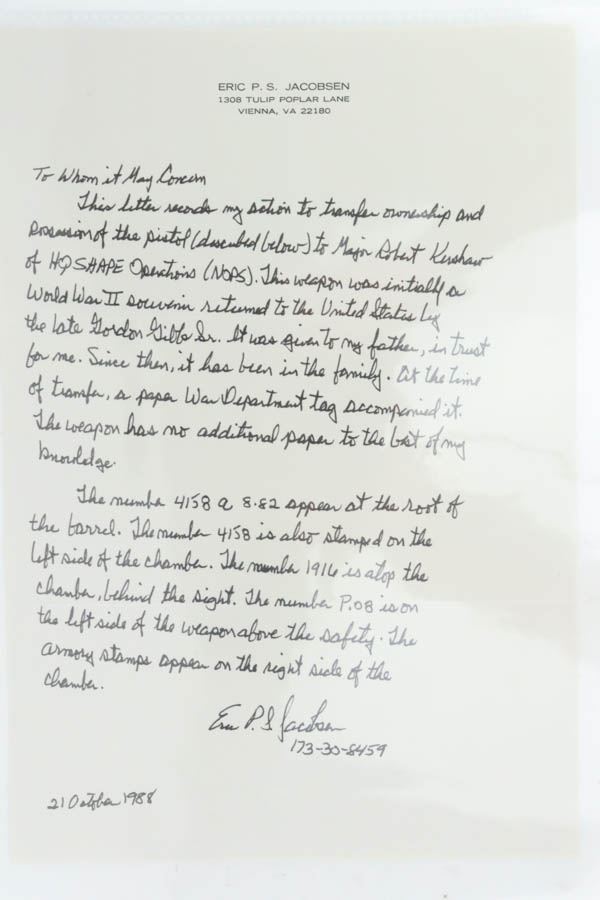 ERIC P. S. JACOBSEN
1308 TULIP POPLAR LANE
VIENNA, VA 22180
To Whom it May Concern
This letter records my action to transfer ownership and
possession of the pistol (described below) to Major Robert Kershaw
of HQ SHAPE Operations (NOPS). This weapon was initially a
World War II souvenir returned to the United States by
the late Gordon Gibbs Sr. It was given to my father, in trust
for me. Since then, it has been in the family. At the time
of transfer, a paper War Department tag accompanied it.
The weapon has no additional paper to the best of my
knowledge.
The number 4158 a 8.82 appear at the root of
the barrel. The number 4158 is also stamped on the
left side of the chamber. The number 1916 is atop the
chamber, behind the sight. The number P.08 is on
the left side of the weapon above the safety. The
armory stamps appear on the right side of the
chamber.
Eric P. S. Jacobsen
173-30-8459
21 October 1988